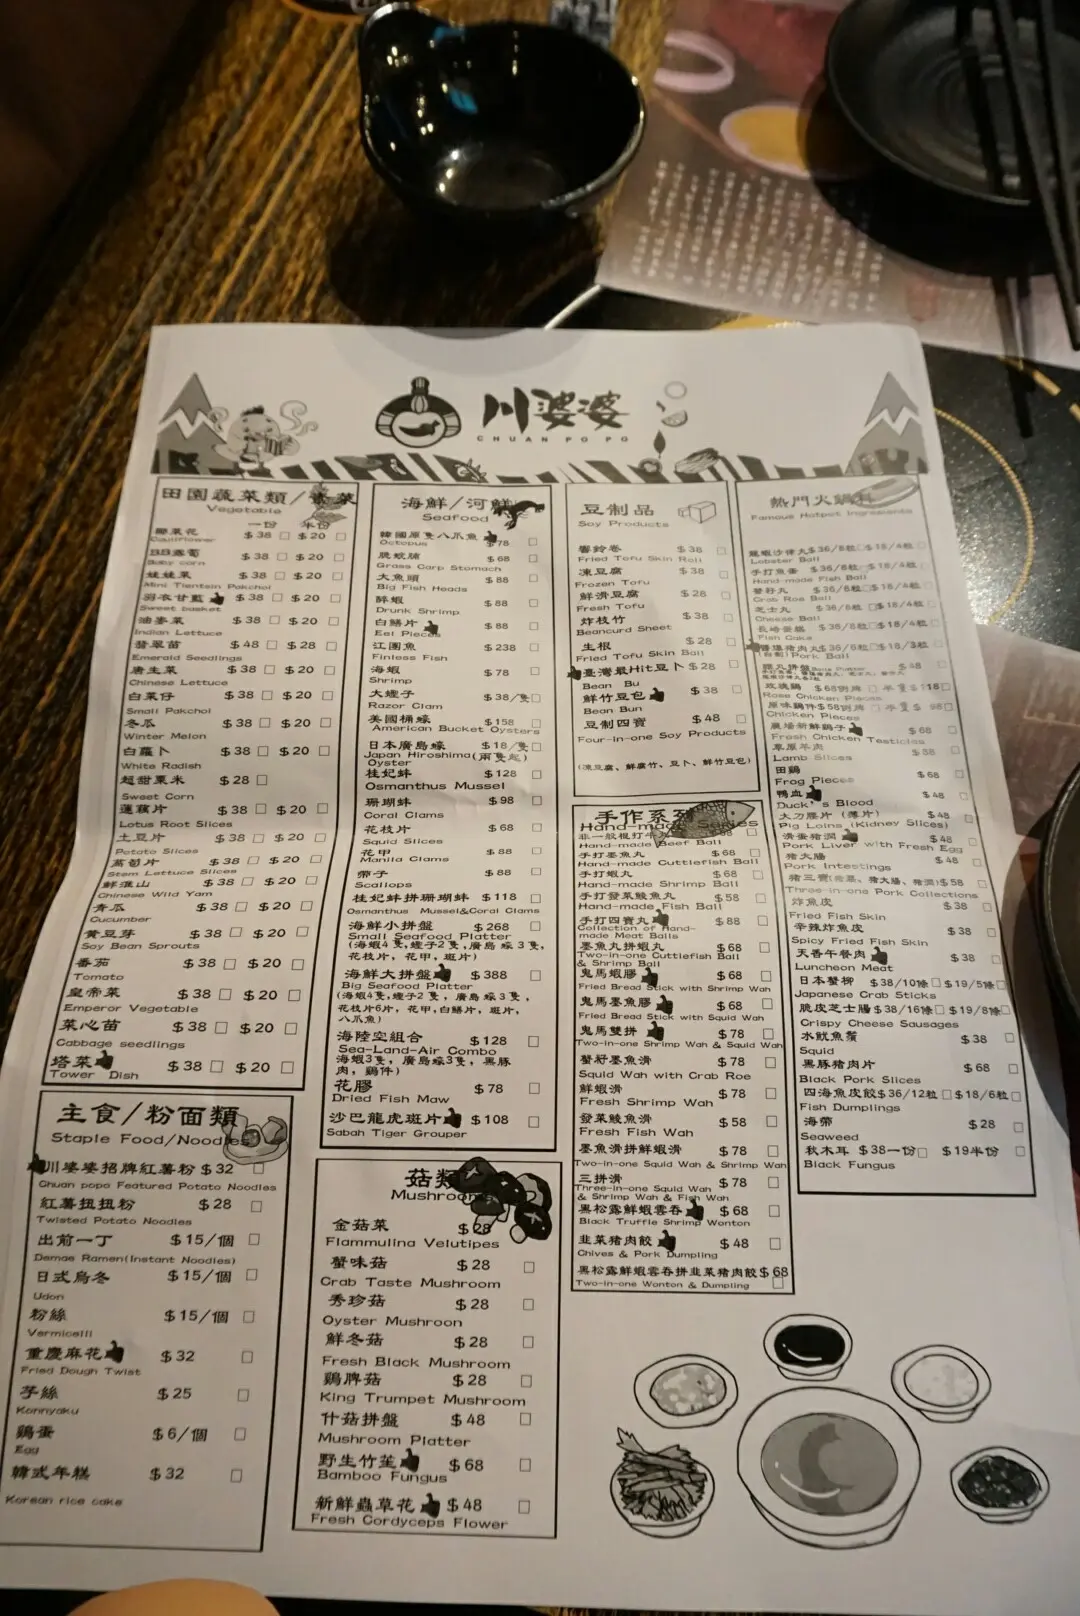 川婆婆
CHUAN PO PO
田園蔬菜類/素菜
Vegetable
一份 半份
椰菜花 $38 □ $20 □
Cauliflower
BB露筍 $38 □ $20 □
Baby corn
娃娃菜 $38 □ $20 □
Mini Tientsin Pakchoi
羽衣甘藍 $38 □ $20 □
Sweet basket
油麥菜 $38 □ $20 □
Indian Lettuce
翡翠苗 $48 □ $28 □
Emerald Seedlings
唐生菜 $38 □ $20 □
Chinese Lettuce
白菜仔 $38 □ $20 □
Small Pakchoi
冬瓜 $38 □ $20 □
Winter Melon
白蘿卜 $38 □ $20 □
White Radish
超甜粟米 $28 □
Sweet Corn
蓮藕片 $38 □ $20 □
Lotus Root Slices
土豆片 $38 □ $20 □
Potato Slices
萵筍片 $38 □ $20 □
Stem Lettuce Slices
鮮淮山 $38 □ $20 □
Chinese Wild Yam
青瓜 $38 □ $20 □
Cucumber
黃豆芽 $38 □ $20 □
Soy Bean Sprouts
番茄 $38 □ $20 □
Tomato
皇帝菜 $38 □ $20 □
Emperor Vegetable
菜心苗 $38 □ $20 □
Cabbage seedlings
塔菜 $38 □ $20 □
Tower Dish
主食/粉面類
Staple Food/Noodles
川婆婆招牌紅薯粉 $32 □
Chuan popo Featured Potato Noodles
紅薯扭扭粉 $28 □
Twisted Potato Noodles
出前一丁 $15/個 □
Demae Ramen(Instant Noodles)
日式烏冬 $15/個 □
Udon
粉絲 $15/個 □
Vermicelli
重慶麻花 $32 □
Fried Dough Twist
芋絲 $25 □
Konnyaku
鷄蛋 $6/個 □
Egg
韓式年糕 $32 □
Korean rice cake
海鮮/河鮮
Seafood
韓國原隻八爪魚 $78 □
Octopus
脆鯇腩 $68 □
Grass Carp Stomach
大魚頭 $88 □
Big Fish Heads
醉蝦 $88 □
Drunk Shrimp
白鱔片 $88 □
Eel Pieces
江團魚 $238 □
Finless Fish
海蝦 $78 □
Shrimp
大蟶子 $38/隻 □
Razor Clam
美國桶蠔 $158 □
American Bucket Oysters
日本廣島蠔 $18/隻 □
Japan Hiroshima(兩隻起)
Oyster
桂妃蚌 $128 □
Osmanthus Mussel
珊瑚蚌 $98 □
Coral Clams
花枝片 $68 □
Squid Slices
花甲 $88 □
Manila Clams
帶子 $88 □
Scallops
桂妃蚌拼珊瑚蚌 $118 □
Osmanthus Mussel&Coral Clams
海鮮小拼盤 $268 □
Small Seafood Platter
(海蝦4隻,蟶子2隻,廣島蠔3隻,
花枝片, 花甲, 斑片)
海鮮大拼盤 $388 □
Big Seafood Platter
(海蝦4隻,蟶子2隻, 廣島蠔3隻,
花枝片6片, 花甲,白鱔片, 斑片,
八爪魚)
海陸空組合 $128 □
Sea-Land-Air Combo
海蝦3隻, 廣島蠔3隻, 黑豚
肉, 鷄件)
花膠 $78 □
Dried Fish Maw
沙巴龍虎斑片 $108 □
Sabah Tiger Grouper
菇類
Mushroom
金菇菜 $28
Flammulina Velutipes
蟹味菇 $28 □
Crab Taste Mushroom
秀珍菇 $28 □
Oyster Mushroon
鮮冬菇 $28 □
Fresh Black Mushroom
鷄脾菇 $28 □
King Trumpet Mushroom
什菇拼盤 $48 □
Mushroom Platter
野生竹笙 $68 □
Bamboo Fungus
新鮮蟲草花 $48 □
Fresh Cordyceps Flower
豆制品
Soy Products
響鈴卷 $38 □
Fried Tofu Skin Roll
凍豆腐 $38 □
Frozen Tofu
鮮滑豆腐 $28 □
Fresh Tofu
炸枝竹 $38 □
Beancurd Sheet
生根 $28 □
Fried Tofu Skin Ball
臺灣最Hit豆卜 $28 □
Bean Bu
鮮竹豆包 $38 □
Bean Bun
豆制四寶 $48 □
Four-in-one Soy Products
(凍豆腐、鮮腐竹、豆卜、鮮竹豆包)
手作系列
Hand-made Series
Hand-made Beef Ball
手打墨魚丸 $68 □
Hand-made Cuttlefish Ball
手打蝦丸 $68 □
Hand-made Shrimp Ball
手打發菜鯪魚丸 $58 □
Hand-made Fish Ball
手打四寶丸 $88 □
Collection of Hand-
made Meat Balls
墨魚丸拼蝦丸 $68 □
Two-in-one Cuttlefish Ball
& Shrimp Ball
鬼馬蝦膠 $68 □
Fried Bread Stick with Shrimp Wah
鬼馬墨魚膠 $68 □
Fried Bread Stick with Squid Wah
鬼馬雙拼 $78 □
Two-in-one Shrimp Wah & Squid Wah
蟹籽墨魚滑 $78 □
Squid Wah with Crab Roe
鮮蝦滑 $78 □
Fresh Shrimp Wah
發菜鯪魚滑 $58 □
Fresh Fish Wah
墨魚滑拼鮮蝦滑 $78 □
Two-in-one Squid Wah & Shrimp Wah
三拼滑 $78 □
Three-in-one Squid Wah
& Shrimp Wah & Fish Wah
黑松露鮮蝦雲吞 $68 □
Black Truffle Shrimp Wonton
韭菜猪肉餃 $48 □
Chives & Pork Dumpling
黑松露鮮蝦雲吞拼韭菜猪肉餃 $68 □
Two-in-one Wonton & Dumpling
熱門火鍋料
Famous Hotpot Ingredients
龍蝦沙律丸 $36/8粒 □ $18/4粒 □
Lobster Ball
手打魚蛋 $36/8粒 □ $18/4粒 □
Hand-made Fish Ball
蟹籽丸 $36/8粒 □ $18/4粒 □
Crab Roe Ball
芝士丸 $36/8粒 □ $18/4粒 □
Cheese Ball
長崎蛋糕 $36/8粒 □ $18/4粒 □
Fish Cake
猪肉丸 $36/6粒 □ $18/3粒 □
Pork Ball
$48 □
玫瑰鷄 $68例牌 □ 半隻$118 □
Rose Chicken Pieces
原味鷄件 $58例牌 □ 半隻$98 □
Chicken Pieces
農場新鮮鷄子 $68 □
Fresh Chicken Testicles
草原羊肉 $88 □
Lamb Slices
田鷄 $68 □
Frog Pieces
鴨血 $48 □
Duck's Blood
大刀腰片 (薄片) $48 □
Pig Loins (Kidney Slices)
滑蛋猪潤 $48 □
Pork Liver with Fresh Egg
猪大腸 $48 □
Pork Intestings
猪三寶 $58 □
Three-in-one Pork Collections
炸魚皮 $38 □
Fried Fish Skin
辛辣炸魚皮 $38 □
Spicy Fried Fish Skin
天香午餐肉 $38 □
Luncheon Meat
日本蟹柳 $38/10條 □ $19/5條 □
Japanese Crab Sticks
脆皮芝士腸 $38/16條 □ $19/8條 □
Crispy Cheese Sausages
水魷魚鬚 $38 □
Squid
黑豚猪肉片 $68 □
Black Pork Slices
四海魚皮餃 $36/12粒 □ $18/6粒 □
Fish Dumplings
海帶 $28 □
Seaweed
秋木耳 $38一份 □ $19半份 □
Black Fungus